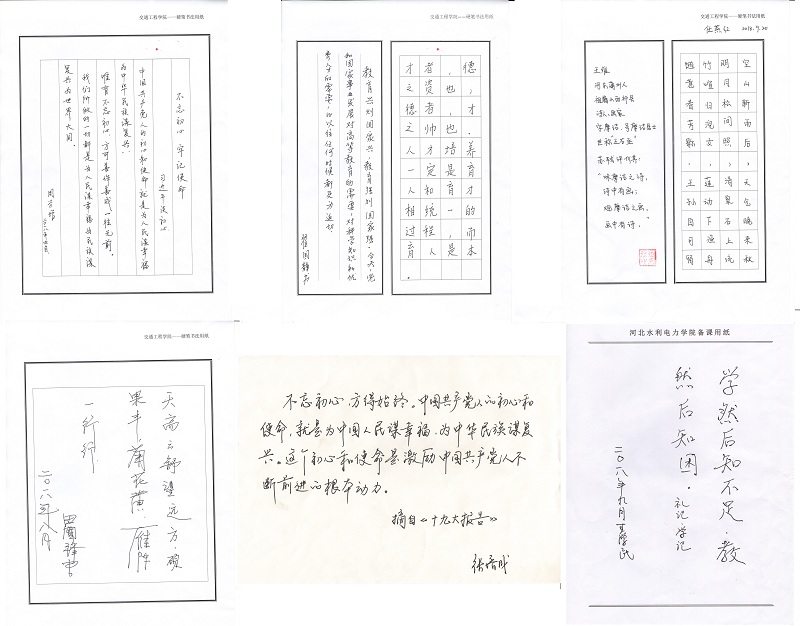 交通工程学院——硬笔书法用纸
不忘初心 牢记使命
习近平谈初心
中国共产党人的初心和使命,就是为人民谋幸福
为中华民族谋复兴.
唯有不忘初心,方可善作善成,一往无前.
我们所做的一切都是为人民谋幸福为民族谋
复兴为世界大同.
交通工程学院——硬笔书法用纸
才者,德
之资也,
德者,才
之帅也.
人才培养
一定是育
人和育才
相统一的
过程,而
育人是本
.
教育兴则国家兴,教育强则国家强.今天,党
和国家事业发展对高等教育的需要,对科学知识和优
秀人才的需要,比以往任何时候都更为迫切
交通工程学院——硬笔书法用纸
任燕红 2018.9.20
空山新雨后,天气晚来秋
明月松间照,清泉石上流
竹喧归浣女,莲动下渔舟
随意春芳歇,王孙自可留
王维
河东蒲州人
祖籍山西祁县
诗人、画家
字摩诘,号摩诘居士
世称“王右丞”
苏轼评价其:
“味摩诘之诗,
诗中有画;
观摩诘之画,
画中有诗.”
交通工程学院——硬笔书法用纸
天高云舒望远方.硕
果丰 蒲花黄.雁阵
一行行.
二〇一八年八月
河北水利电力学院备课用纸
不忘初心,方得始终。中国共产党人的初心和
使命,就是为中国人民谋幸福,为中华民族谋复
兴。这个初心和使命是激励中国共产党人不
断前进的根本动力。
摘自《十九大报告》
学然后知不足.教
然后知困.礼记·学记
二〇一八年九月